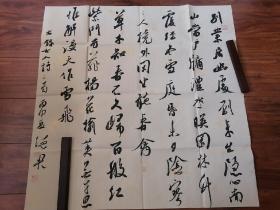 别业居幽处到来生隐心南
山当户牖沣水映园林
覆经冬雪庭昏未夕阴寥
人境外闲坐听春禽
草木知春不久归百般红
紫斗芳菲杨花榆荚无才思
惟解漫天作雪飞
人诗二首